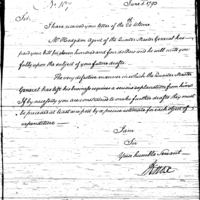 June 1st 1793
Sir,
I have received your letter of the
Mr Hodgdon Agent of the Quarter Master General has
paid your bill for seven hundred and four dollars and he will write you
fully upon the subject of your future drafts.
The very defective manner in which the Quarter Master
General has left his business requires a serious explanation from him
If by necessity you are constrained to make further drafts they must
be preceded at least one post by a precise estimate for each object of
expenditure
I am
Sir
Your humble Servant